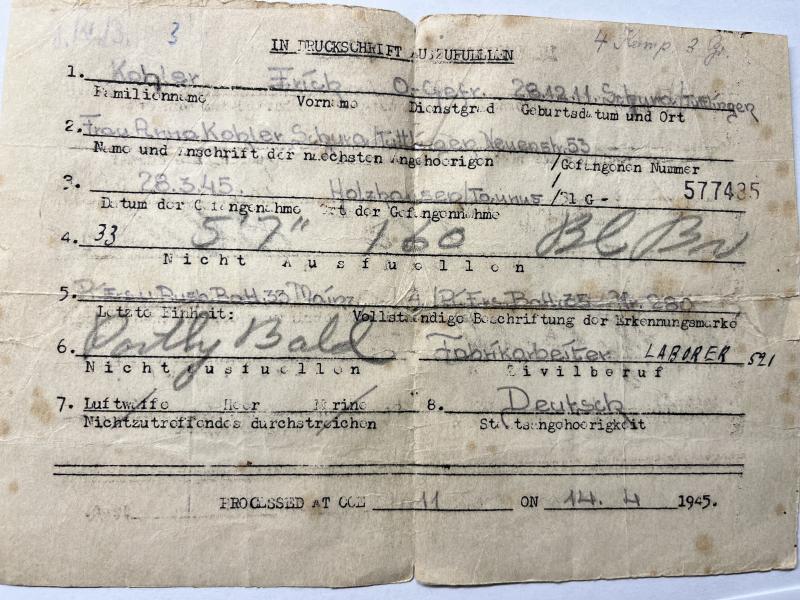 3
4 Komp. 3 Gr.
IN DRUCKSCHRIFT AUSZUFUELLEN
1. Kohler Erich O-Gefr. 28.12.11. Schura/Tuttlingen
Familienname Vorname Dienstgrad Geburtsdatum und Ort
2. Frau Anna Kohler Schura/Tuttlingen Neuenstr. 53
Name und Anschrift der naechsten Angehoerigen /Gefangenen Nummer
3. 28.3.45. Holzhausen/Taunus /31 G - 577435
Datum der Gefangennahme Ort der Gefangennahme
4. 33 5'7" 160 Bl Bw
Nicht Ausfuellen
5. Mainz
Letzte Einheit: Vollstaendige Beschriftung der Erkennungsmarke
6. Portly Bald Fabrikarbeiter LABORER 591
Nicht ausfuellen Zivilberuf
7. Luftwaffe Heer Marine 8. Deutsch
Nichtzutreffendes durchstreichen Staatsangehoerigkeit
PROCESSED AT CCE 11 ON 14.4 1945.